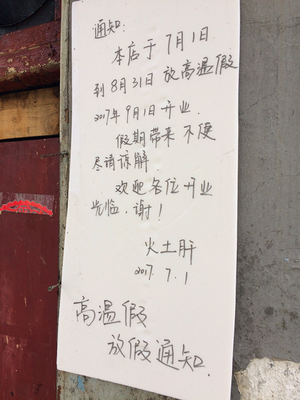 通知:
本店于7月1日
到8月31日放高温假
2017年9月1日开业.
假期带来不便
尽请谅解.
欢迎各位开业
光临.谢!
火土肝
2017.7.1
高温假
放假通知.